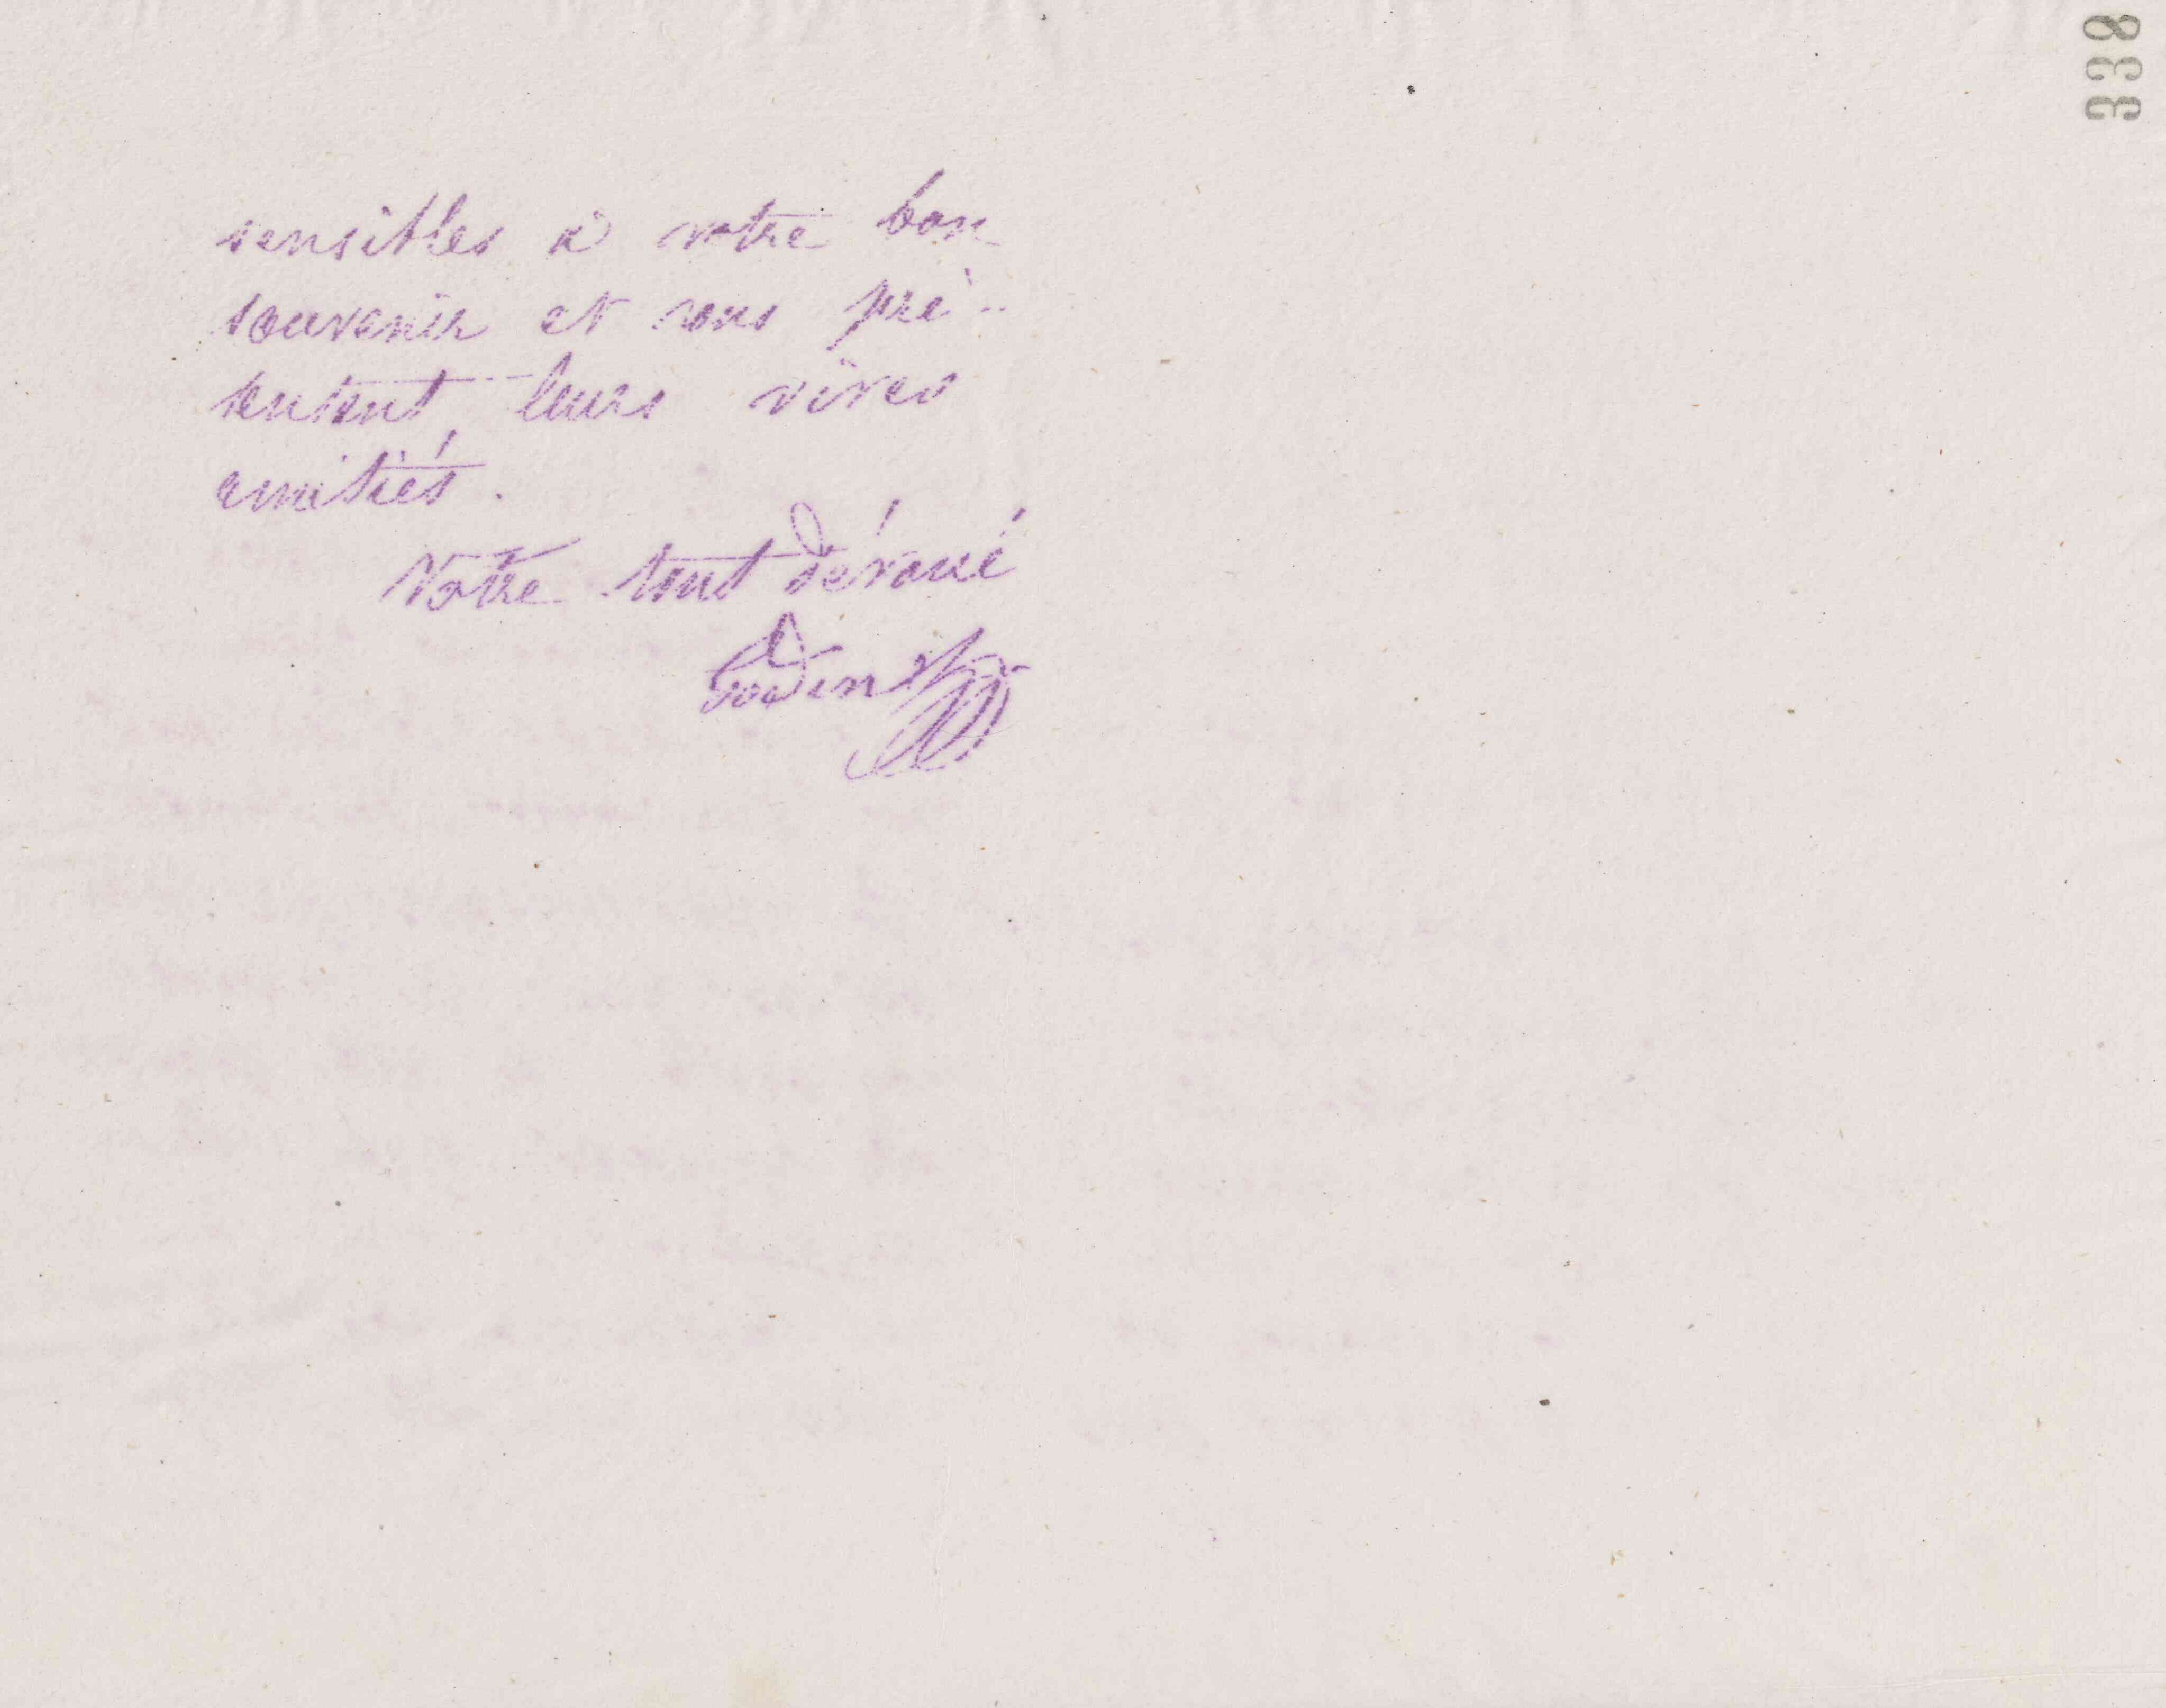 338
sensibles à votre bon
souvenir et vous pré-
sentent leurs vives
amitiés.
Votre tout dévoué
Godin